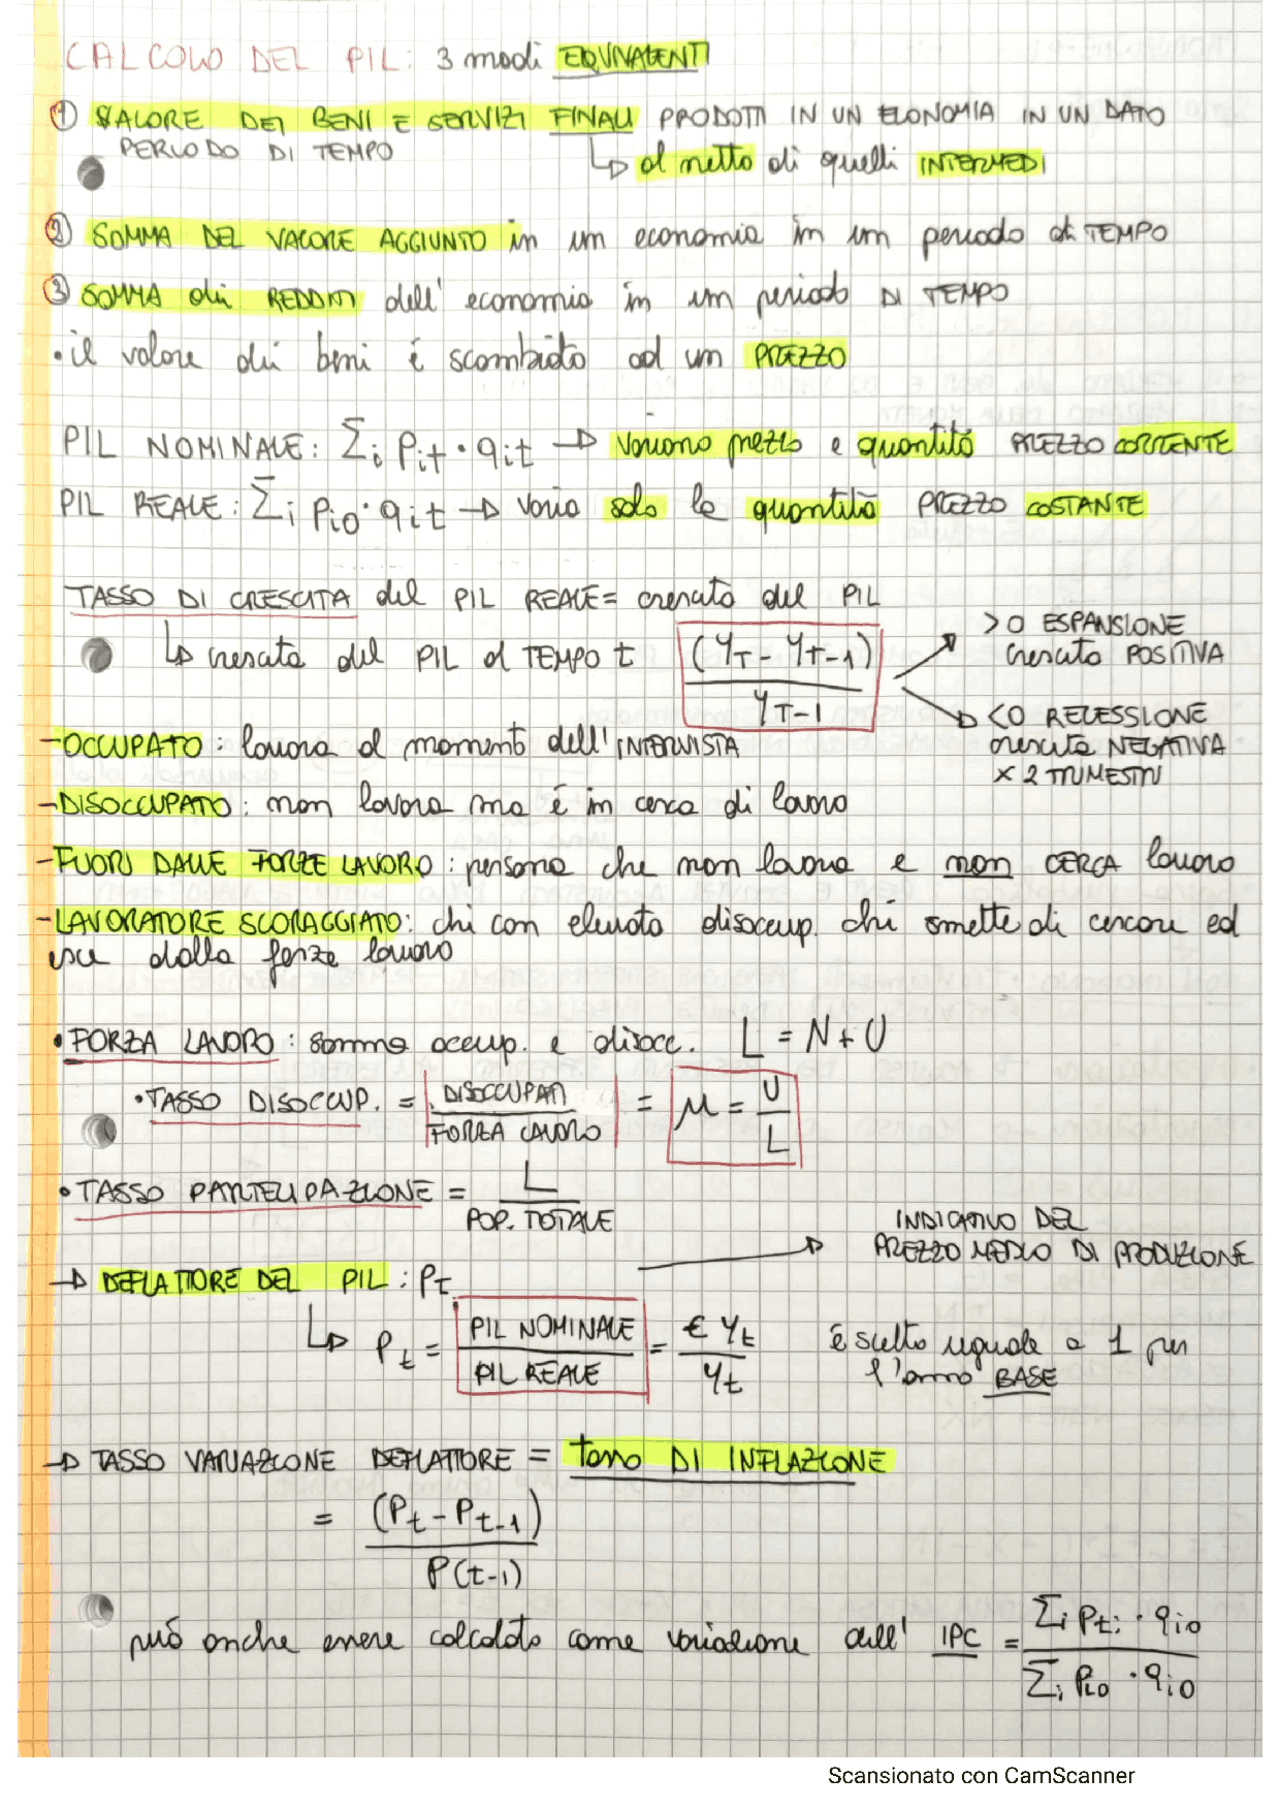 CALCOLO DEL PIL: 3 modi EQUIVALENTI
① VALORE DEI BENI E SERVIZI FINALI PRODOTTI IN UN ECONOMIA IN UN DATO
PERIODO DI TEMPO
↳ al netto di quelli INTERMEDI
② SOMMA DEL VALORE AGGIUNTO in un economia in un periodo di TEMPO
③ SOMMA dei REDDITI dell' economia in un periodo DI TEMPO
• il valore dei beni è scambiato ad un PREZZO
PIL NOMINALE: Σi Pit · qit → variano prezzo e quantità PREZZO CORRENTE
PIL REALE: Σi Pio · qit → varia solo la quantità PREZZO COSTANTE
TASSO DI CRESCITA del PIL REALE = crescita del PIL
>0 ESPANSIONE
crescita POSITIVA
↳ crescita del PIL al TEMPO t (YT - YT-1) / YT-1
<0 RECESSIONE
crescita NEGATIVA
x 2 TRIMESTRI
- OCCUPATO: lavora al momento dell'INTERVISTA
- DISOCCUPATO: non lavora ma è in cerca di lavoro
- FUORI DALLE FORZE LAVORO: persona che non lavora e non CERCA lavoro
- LAVORATORE SCORAGGIATO: chi con elevata disoccup. chi smette di cercare ed
esce dalla forza lavoro
• FORZA LAVORO: somma occup. e disocc. L = N + U
• TASSO DISOCCUP. = DISOCCUPATI / FORZA LAVORO = μ = U / L
• TASSO PARTECIPAZIONE = L / POP. TOTALE
INDICATIVO DEL
PREZZO MEDIO DI PRODUZIONE
→ DEFLATTORE DEL PIL: Pt
↳ Pt = PIL NOMINALE / PIL REALE = € Yt / Yt è scelto uguale a 1 per
l'anno BASE
→ TASSO VARIAZIONE DEFLATTORE = tasso DI INFLAZIONE
= (Pt - Pt-1) / P(t-1)
può anche essere calcolato come variazione dell' IPC = Σi Pti · qio / Σi Pio · qio
Scansionato con CamScanner